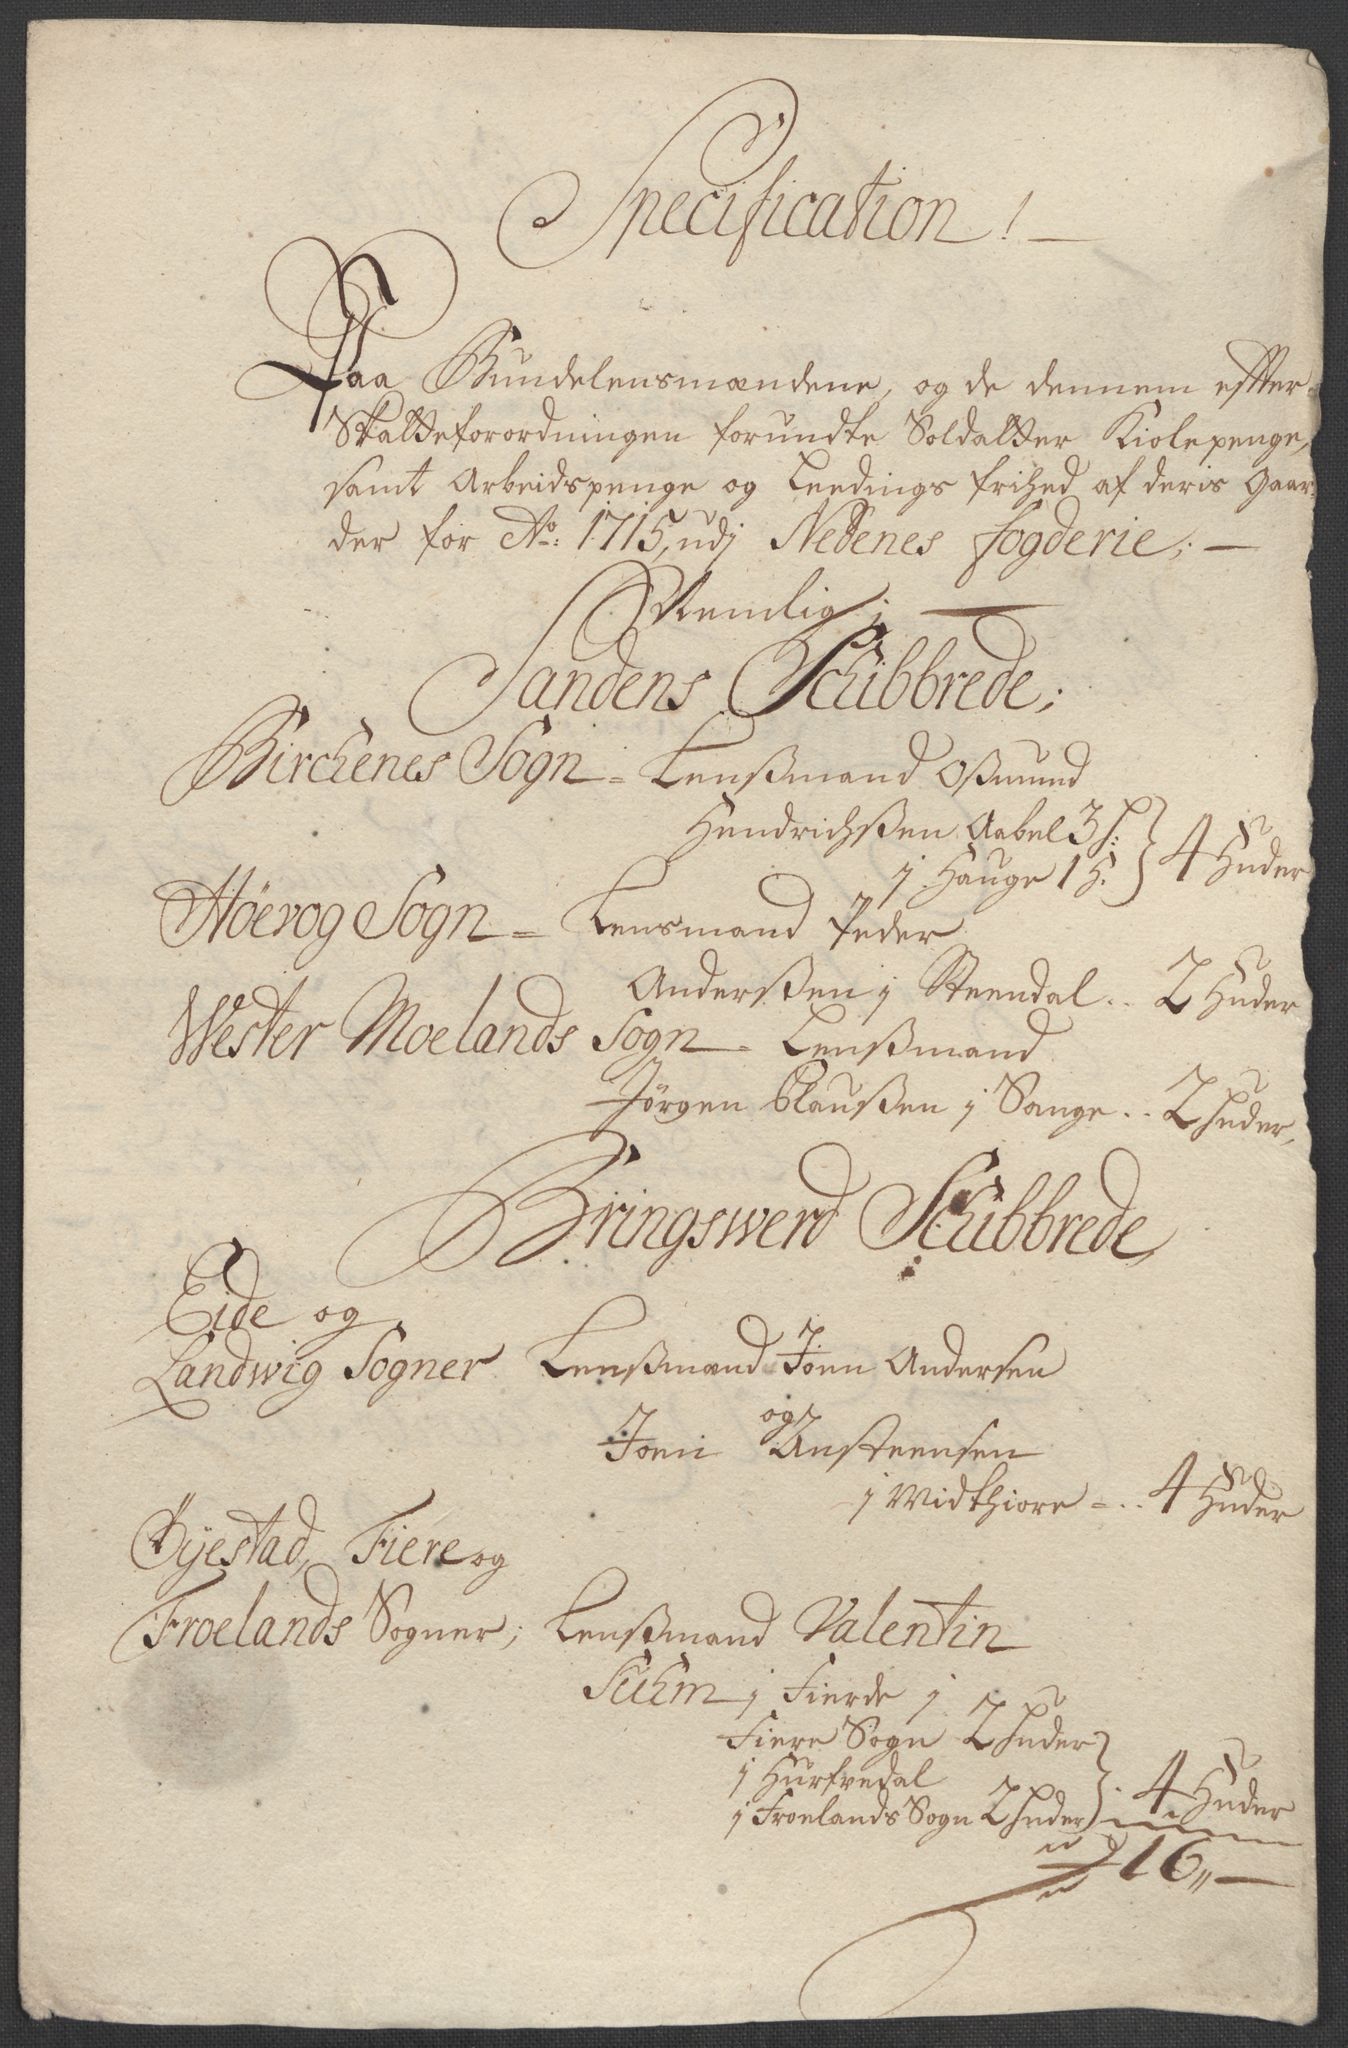 Specification!
Paa Bundelensmændene, og de dennem effter
Skatteforordningen forundte Soldatter Kiolepenge,
samt Arbeidspenge og Leedings frihed af deris Gaar-
der for Ao: 1715, udj Nedenes fogderie;
Nemlig;
Sandens Schibbrede;
Birchenes Sogn = Lenßmand Oßmund
Hendrichßen Aabel 3 h:
j Hauge 1 H. } 4 Huder
Höevog Sogn = Lensmand Peder
Anderßen j Steendal .. 2 Huder
Wester Moelands Sogn = Lenßmand
Jørgen Claußen j Sange .. 2 huder,
Bringswerd Schibbrede
Eide og
Landwig Sogner Lenßmænd Joen Andersen
og
Joen Ansteensen
j Widkhiore = .. 4 Huder
Øyestad, Fiere og
Froelands Sogner; Lenßmand Valentin
Suhm j Fierde j
Fiere Sogn 2 huder
j Hurfvedal
j Froelands Sogn 2 huder } . 4 Huder
16,,